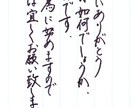 にありがとう
は如何でしょうか。
です。
為に努めますので
は宜しくお願い致しま